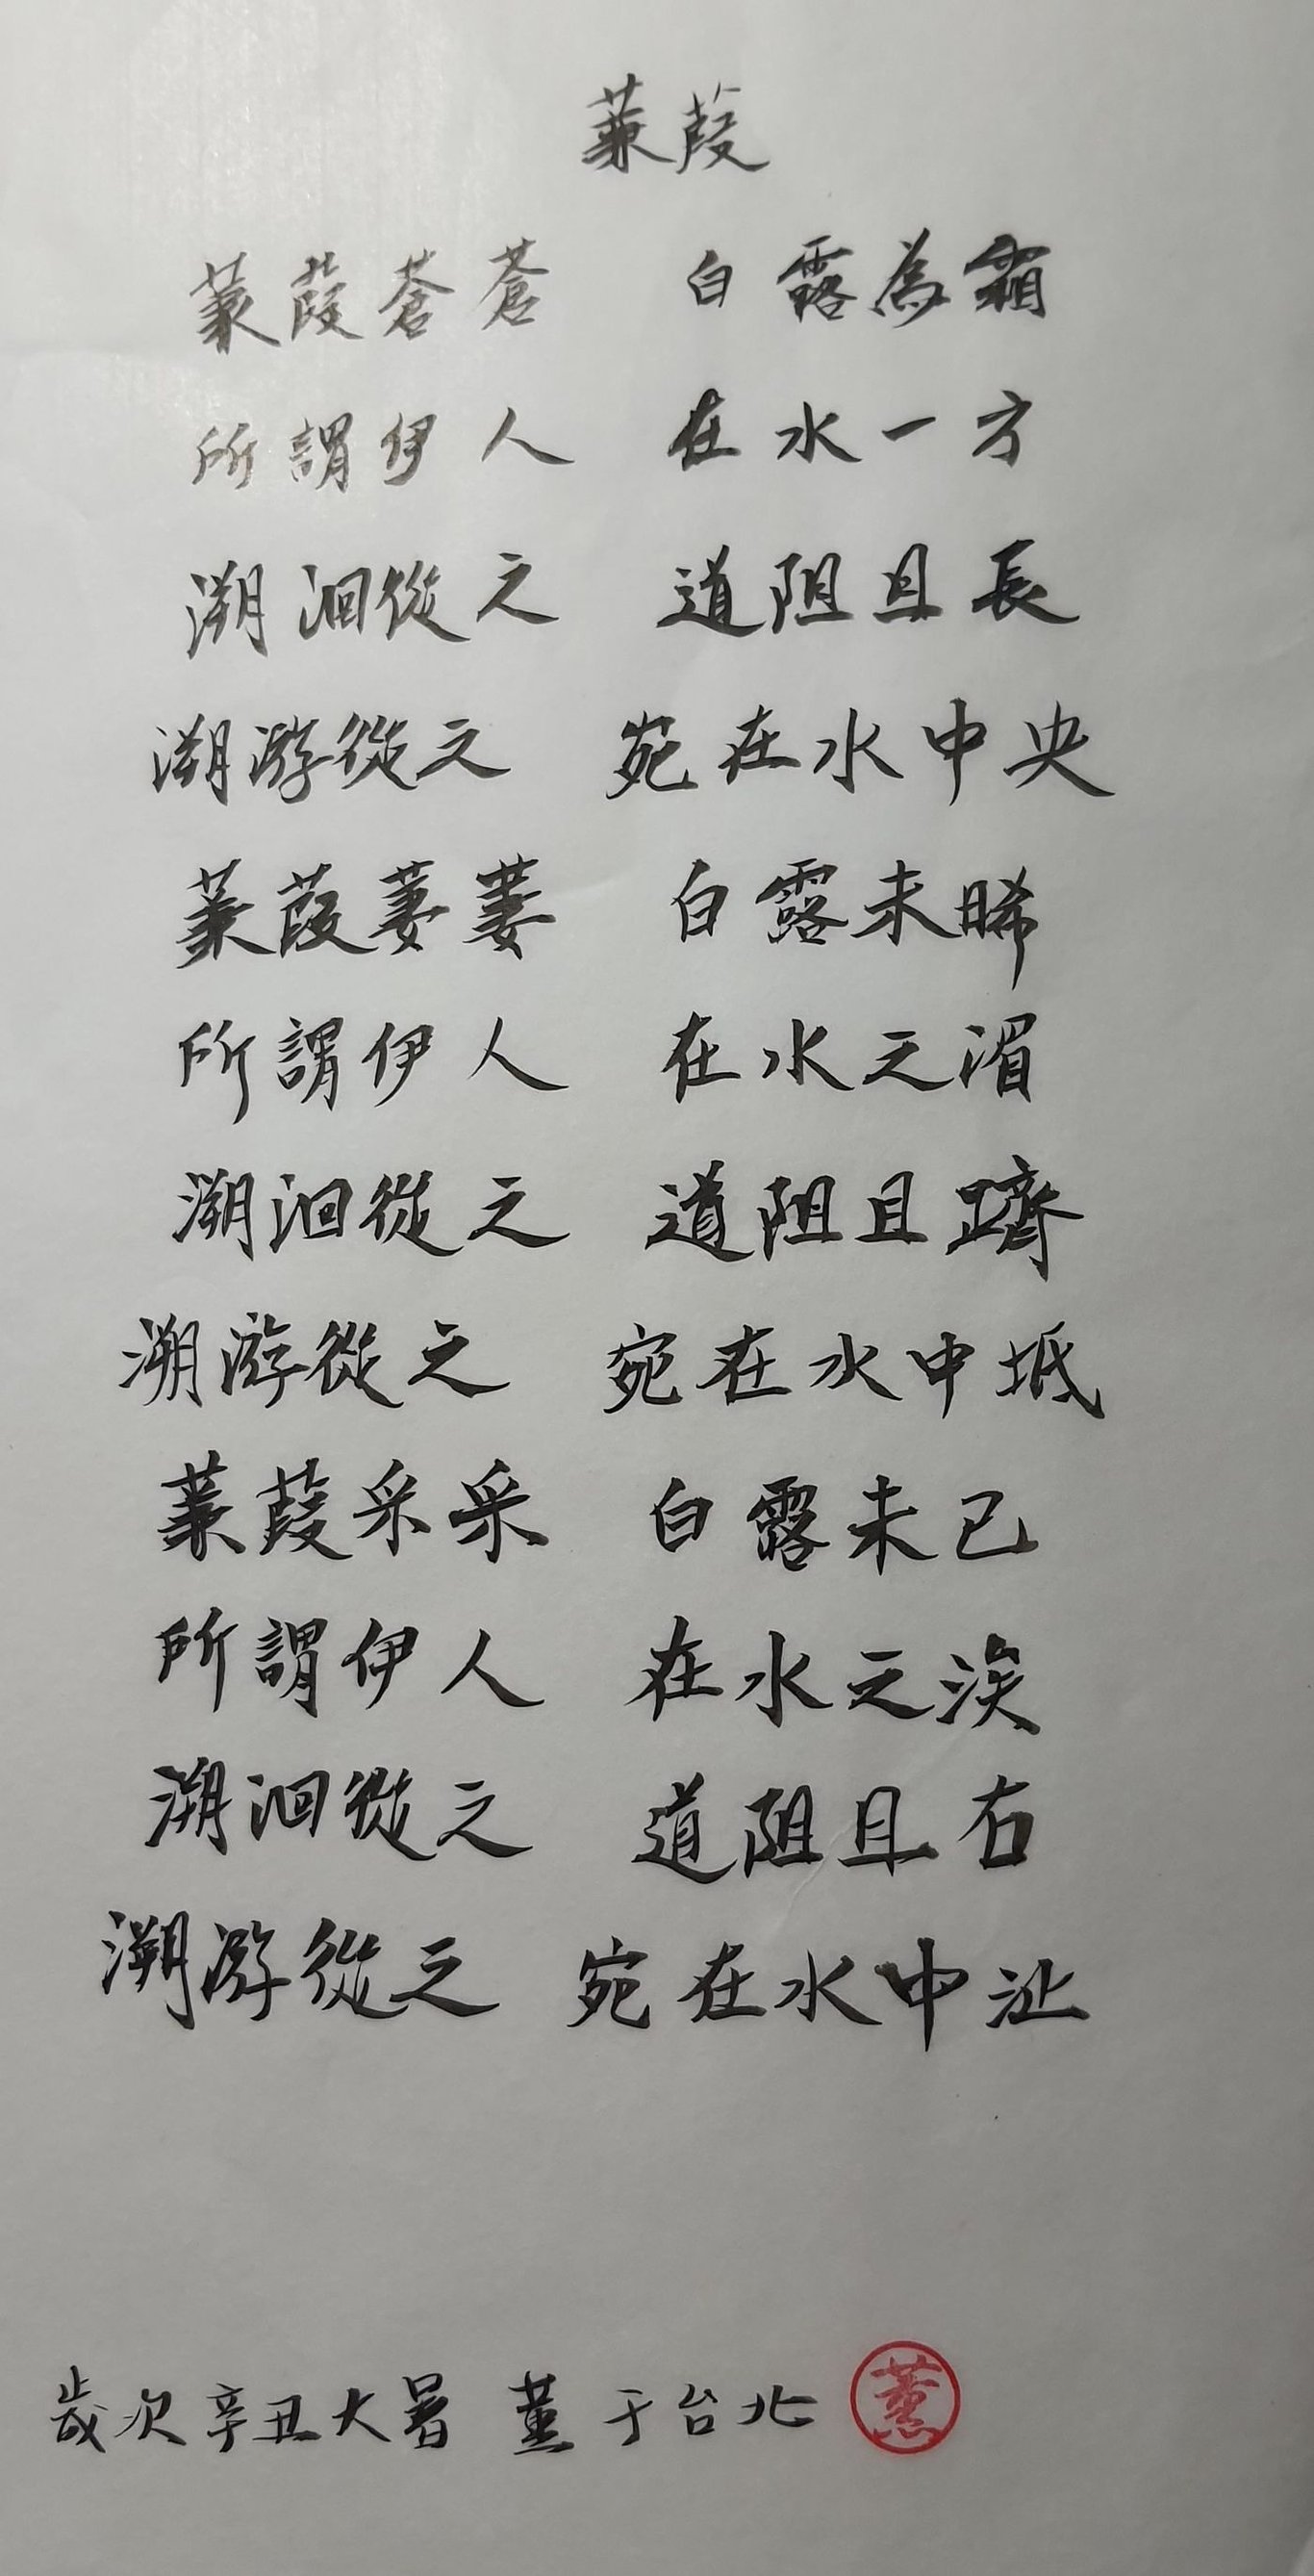 蒹葭
蒹葭蒼蒼 白露為霜
所謂伊人 在水一方
溯洄從之 道阻且長
溯游從之 宛在水中央
蒹葭萋萋 白露未晞
所謂伊人 在水之湄
溯洄從之 道阻且躋
溯游從之 宛在水中坻
蒹葭采采 白露未已
所謂伊人 在水之涘
溯洄從之 道阻且右
溯游從之 宛在水中沚
歲次辛丑大暑 于台北